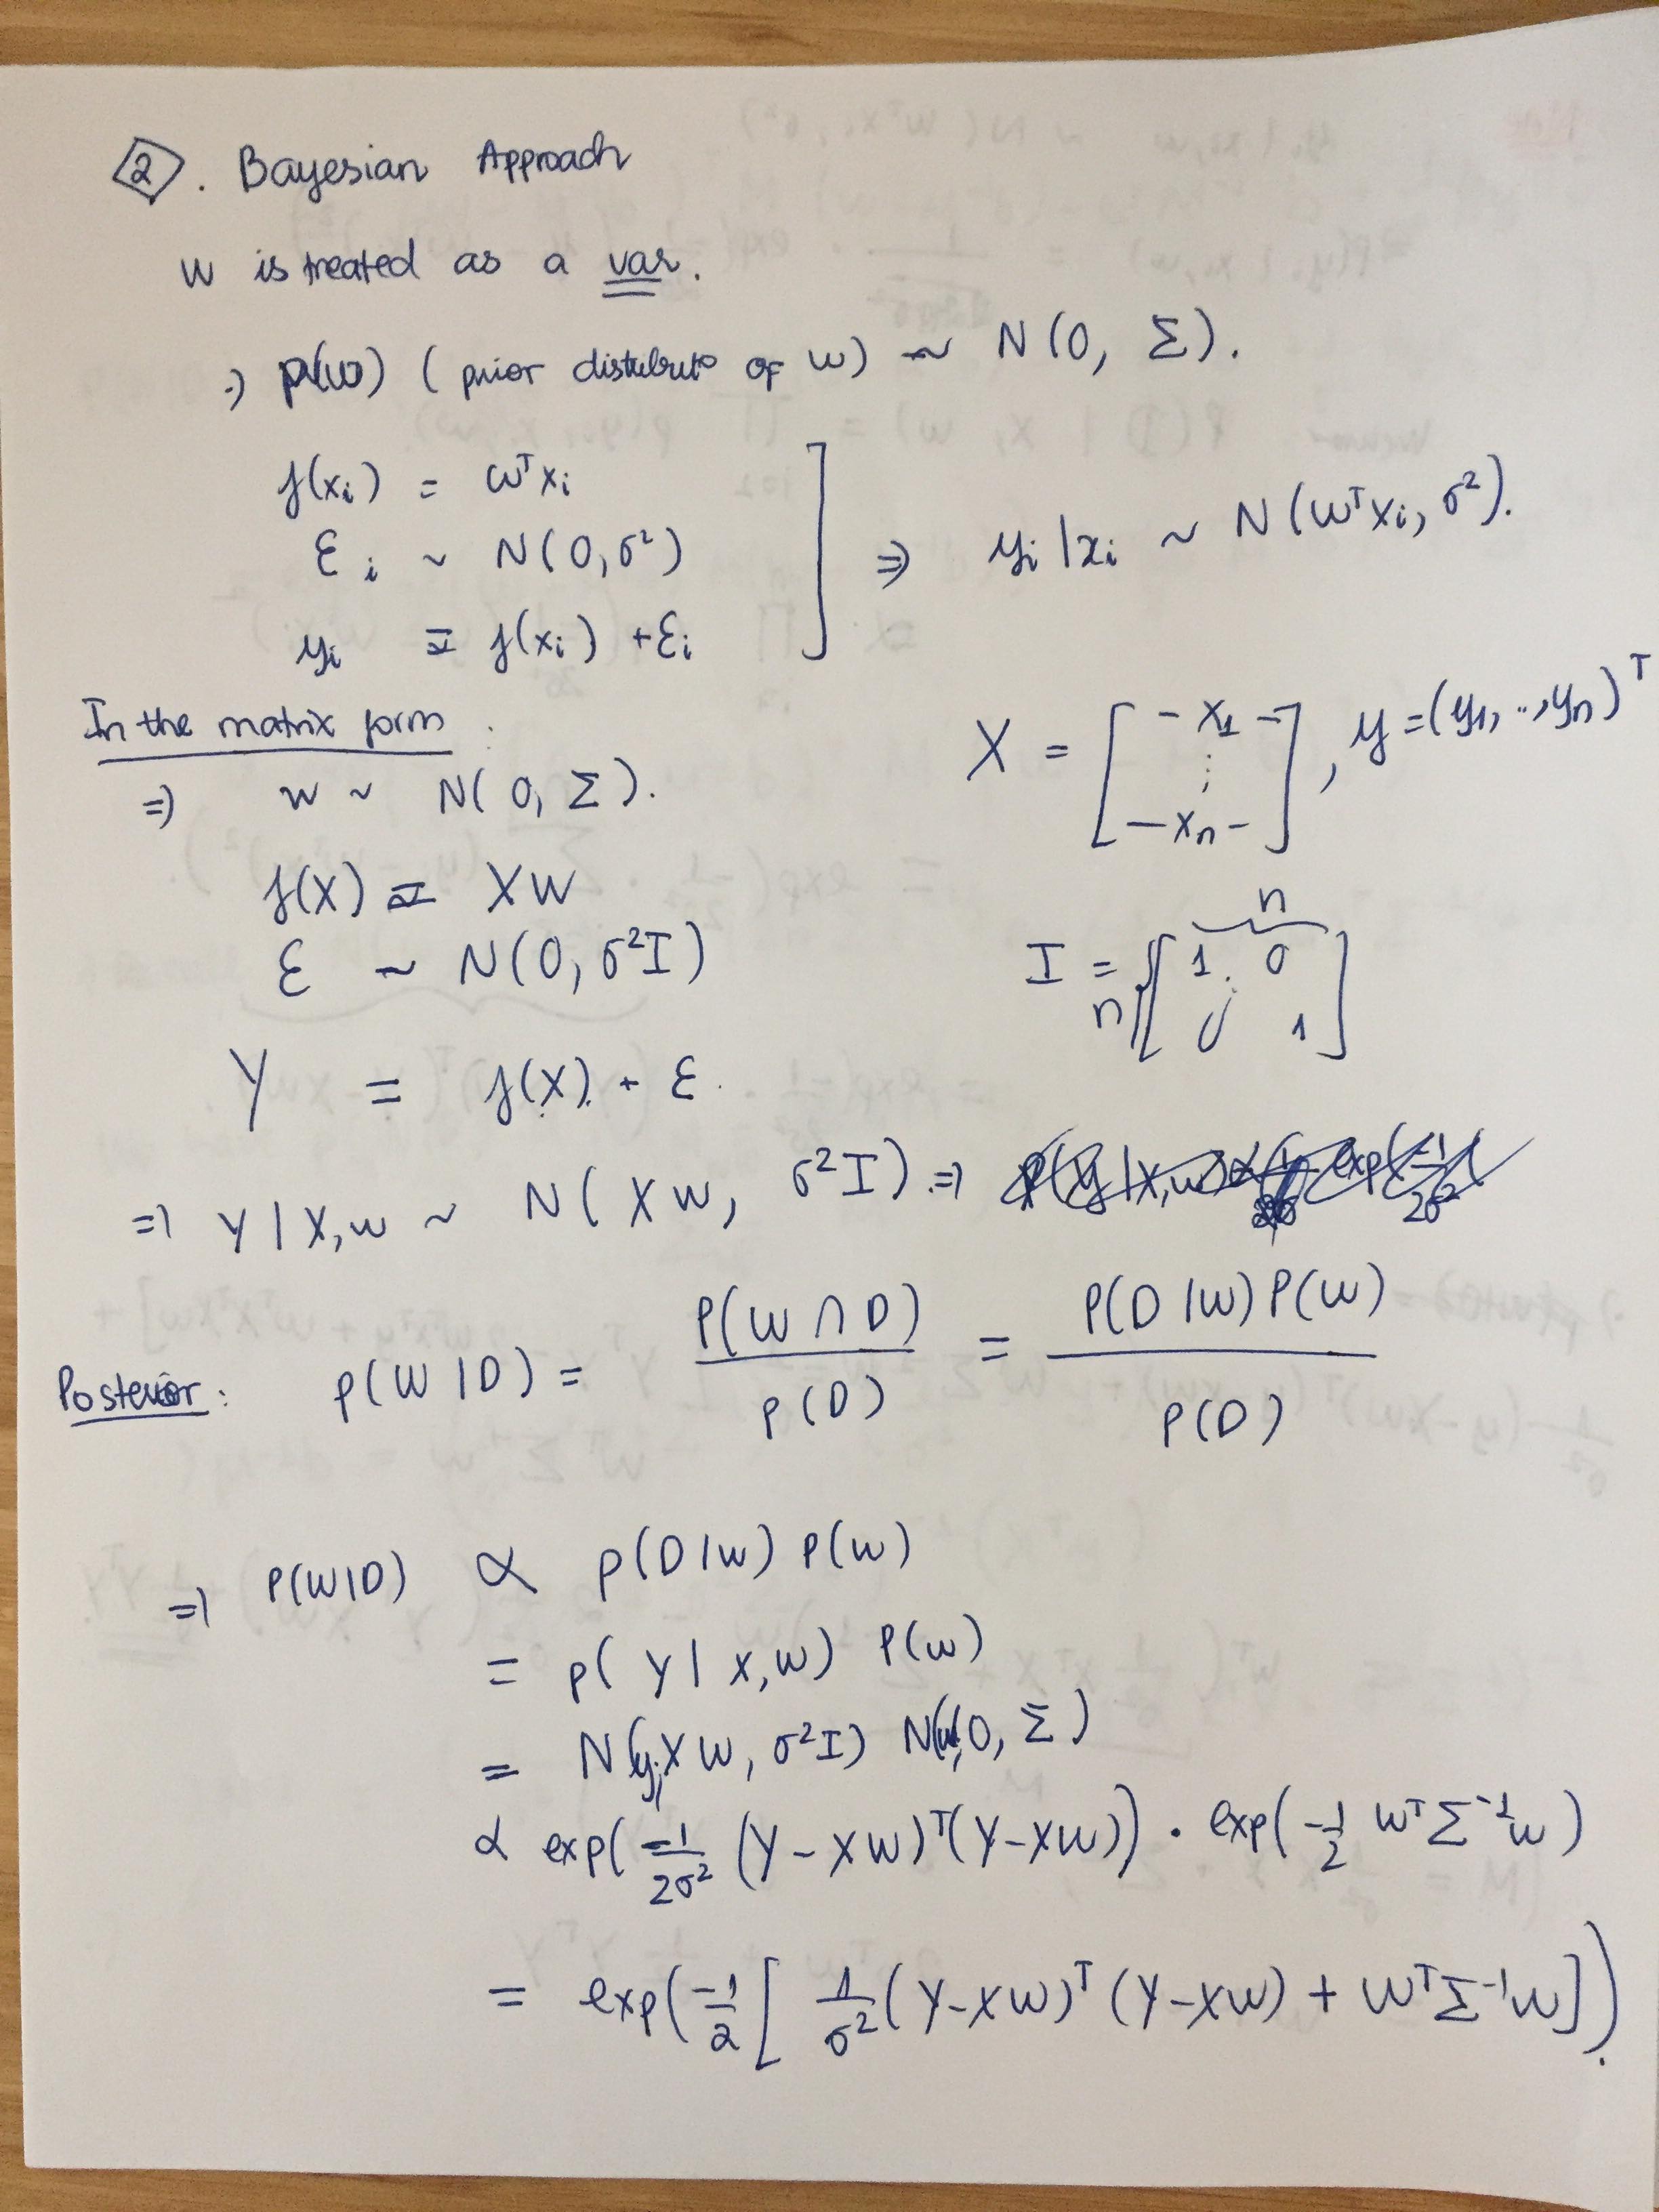 2. Bayesian Approach
w is treated as a var.
⇒ p(w) (prior distributo of w) ~ N(0, Σ).
f(xᵢ) = wᵀxᵢ
εᵢ ~ N(0, σ²)
yᵢ = f(xᵢ) + εᵢ
⇒ yᵢ | xᵢ ~ N(wᵀxᵢ, σ²).
In the matrix form :
X = [ - x₁ - ⋮ - xₙ - ] , y = (y₁, .., yₙ)ᵀ
⇒ w ~ N(0, Σ).
f(X) = XW
ε ~ N(0, σ²I)
I = n [ 1 . 0 0 1 ] n
Y = f(X) + ε.
⇒ Y | X,w ~ N(XW, σ²I) ⇒
Posterior: p(W|D) = P(W ∩ D) / P(D) = P(D|W) P(W) / P(D)
⇒ P(W|D) ∝ p(D|w) P(w)
= p(Y | x,w) P(w)
= N(y; XW, σ²I) N(w; 0, Σ)
∝ exp(-1/2σ² (Y-XW)ᵀ(Y-XW)) · exp(-1/2 WᵀΣ⁻¹w)
= exp(-1/2 [ 1/σ² (Y-XW)ᵀ(Y-XW) + WᵀΣ⁻¹W ]).